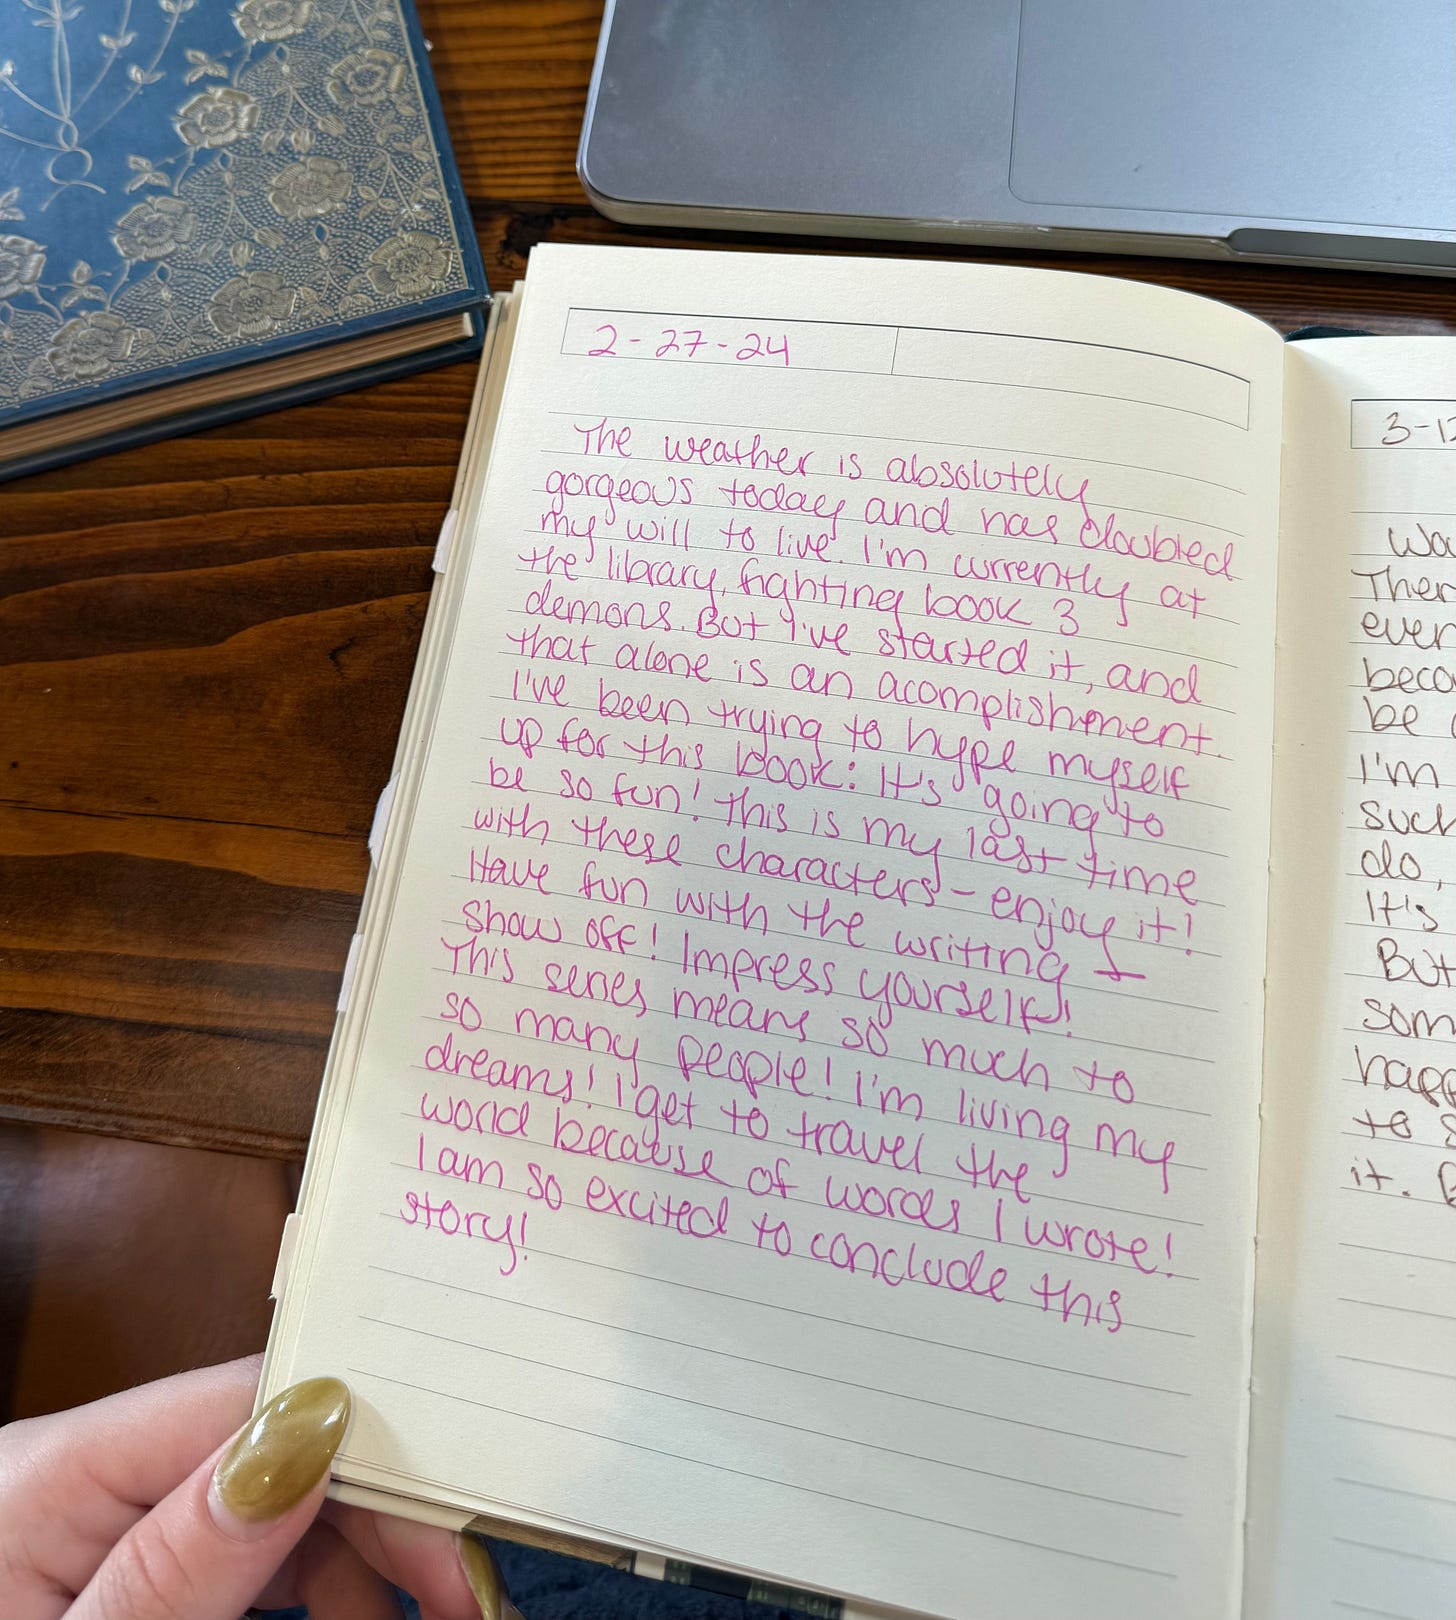 2-27-24
The weather is absolutely
gorgeous today and has doubled
my will to live. I'm currently at
the library, fighting book 3
demons. But I've started it, and
that alone is an acomplishment.
I've been trying to hype myself
up for this book: It's going to
be so fun! This is my last time
with these characters - enjoy it!
Have fun with the writing +
show off! Impress yourself!
This series means so much to
so many people! I'm living my
dreams! I get to travel the
world because of words I wrote!
I am so excited to conclude this
story!
3-1
Wo
Ther
ever
beco
be
I'm
such
do,
It's
But
som
happ
to s
it.